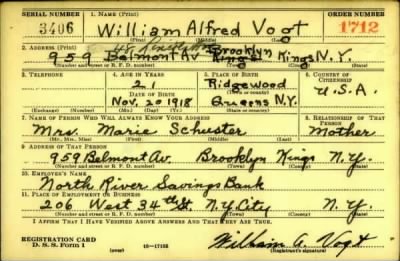 SERIAL NUMBER 1. NAME (Print) ORDER NUMBER
3406 William Alfred Vogt 1712
(First) (Middle) (Last)
2. ADDRESS (Print)
959 Belmont Av Brooklyn Kings N.Y.
(Number and street or R. F. D. number) (Town) (County) (State)
3. TELEPHONE 4. AGE IN YEARS 5. PLACE OF BIRTH 6. COUNTRY OF CITIZENSHIP
21 Ridgewood
DATE OF BIRTH (Town or county) U.S.A.
Nov. 20 1918 Queens N.Y.
(Exchange) (Number) (Mo.) (Day) (Yr.) (State or country)
7. NAME OF PERSON WHO WILL ALWAYS KNOW YOUR ADDRESS 8. RELATIONSHIP OF THAT PERSON
Mrs. Marie Schuster Mother
(Mr., Mrs., Miss) (First) (Middle) (Last)
9. ADDRESS OF THAT PERSON
959 Belmont Av. Brooklyn Kings N.Y.
(Number and street or R. F. D. number) (Town) (County) (State)
10. EMPLOYER'S NAME
North River Savings Bank
11. PLACE OF EMPLOYMENT OR BUSINESS
206 West 34th St. N.Y. City N.Y.
(Number and street or R. F. D. number) (Town) (County) (State)
I AFFIRM THAT I HAVE VERIFIED ABOVE ANSWERS AND THAT THEY ARE TRUE.
REGISTRATION CARD
D. S. S. Form 1 (over) 16—17105 William A. Vogt
(Registrant's signature)